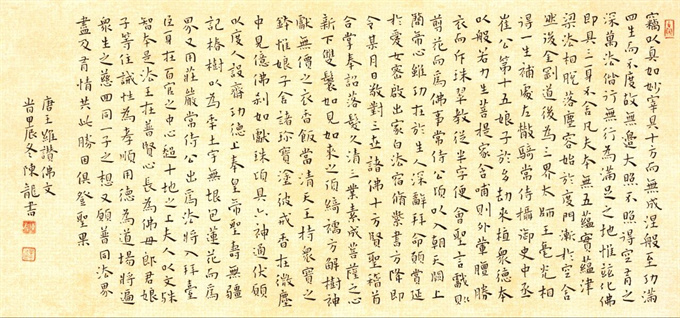 竊以真如妙宰具十方而無成涅槃至功滿
四生而不度故無邊大照不照得空有之
深萬法偕行無行為滿足之地惟茲化佛
即具三身不舍凡夫本無五蘊寶蘊津
梁法相脫落塵容始於度門漸於空舍
然後金剛道後為三界大師玉毫光相
得一生補處左散騎常侍攝御史中丞
崔公第十五娘子於多劫來植眾德本
以般若力生菩提家含哺則外葷膻勝
衣而斥珠翠教從半字便會聖言戲則
剪花而為佛事常侍公頃以入朝天闕上
簡帝心雖功在於生人深辭拜命願賞延
於愛女密啟出家白法宿修紫書方降即
令某月日敬對三世諸佛十方賢聖稽首
合掌奉詔落髮久清三業素成菩薩之心
新下雙鬟如見如來之頂綺襦方解樹神
獻無價之衣香飯當清天王持眾寶之
鉢惟娘子舍諸珍寶塗彼戒香在微塵
中見億佛剎如獻珠頃具六神通伏願
以度人設齋功德上奉皇帝聖壽無疆
記椿樹以為年土宇無垠包蓮花而為
界又用莊嚴常侍公出為法將入拜臺
臣身在百官之中心超十地之上夫人以文殊
智本是法王在普賢心長為佛母郎君娘
子等住誡性為孝順用德為道場將遍
眾生之慈迥同一子之想又願普同法界
盡及有情共此勝因俱登聖果
唐王維讚佛文
時甲辰冬陳龍書